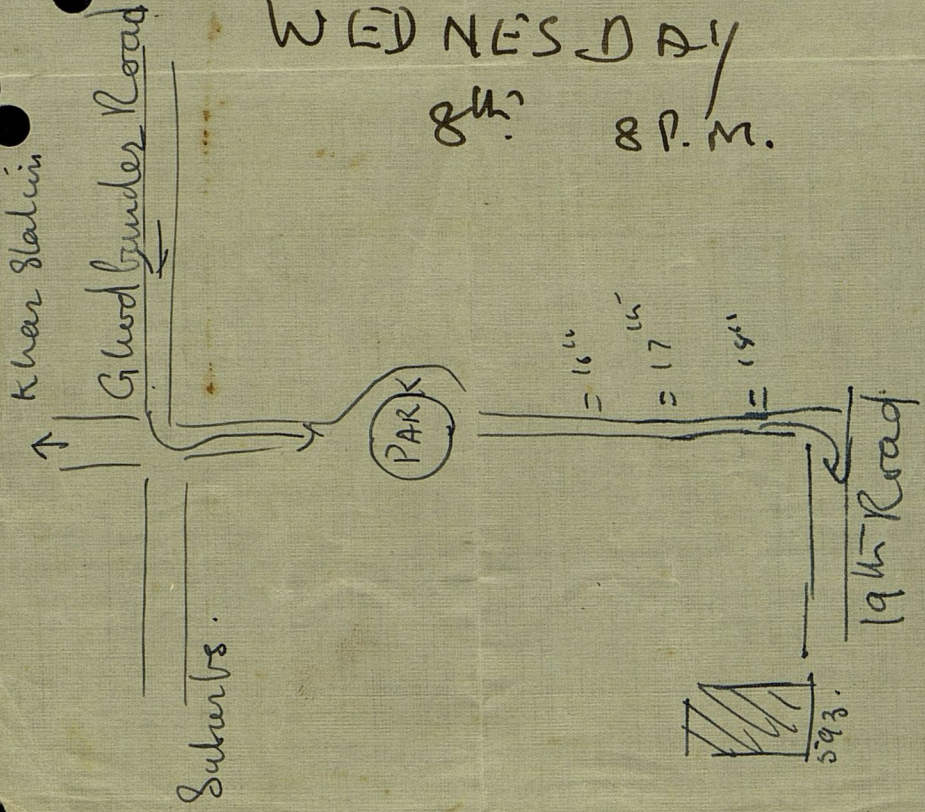 WEDNESDAY
8th. 8 P.M.
Khar Station
Ghodbunder Road
PARK
= 16th
= 17th
= 18th
19th Road
Suburbs.
593.